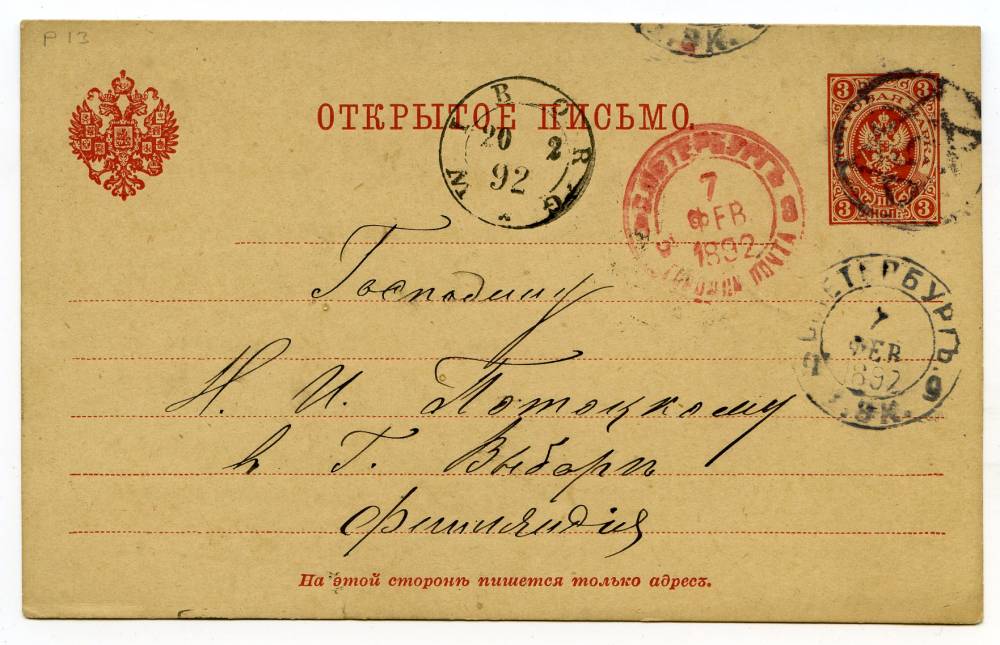 P 13
.ЭК.
ОТКРЫТОЕ ПИСЬМО.
WIBORG
20 2
92
С.ПЕТЕРБУРГЪ
7
ФЕВ.
1892
ПОЧТА
3 3
МАРКА
3 КОП. 3
С.ПЕТЕРБУРГЪ.
7
ФЕВ
1892
.ЭК.
Господину
Н. И. Потоцкому
в Г. Выборгъ
Финляндія
На этой сторонѣ пишется только адресъ.